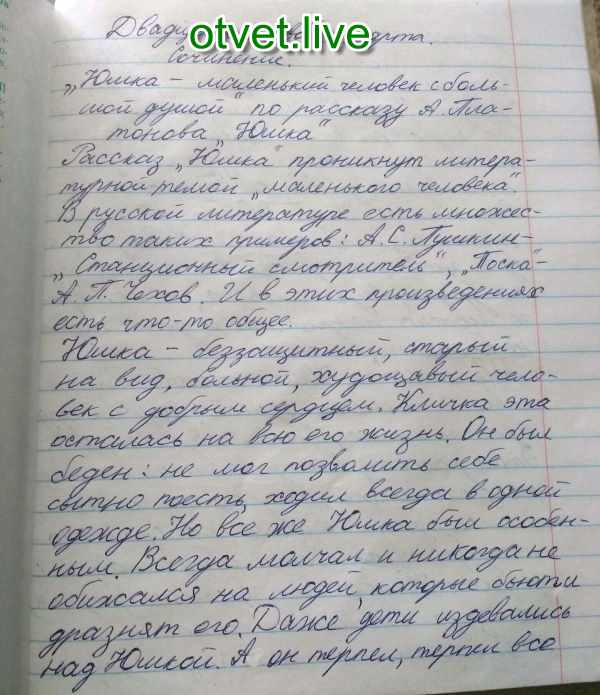 Двадц
otvet.live
рта.
Сочинение.
„Юшка – маленький человек с боль-
шой душой" по рассказу А. Пла-
тонова „Юшка"
Рассказ „Юшка" проникнут литера-
турной темой „маленького человека".
В русской литературе есть множес-
тво таких примеров: А. С. Пушкин –
„Станционный смотритель", „Тоска" –
А. П. Чехов. И в этих произведениях
есть что-то общее.
Юшка – беззащитный, старый
на вид, больной, худощавый чело-
век с добрым сердцем. Кличка эта
осталась на всю его жизнь. Он был
беден: не мог позволить себе
сытно поесть, ходил всегда в одной
одежде. Но все же Юшка был особен-
ным. Всегда молчал и никогда не
обижался на людей, которые бьют и
дразнят его. Даже дети издевались
над Юшкой. А он терпел, терпел все